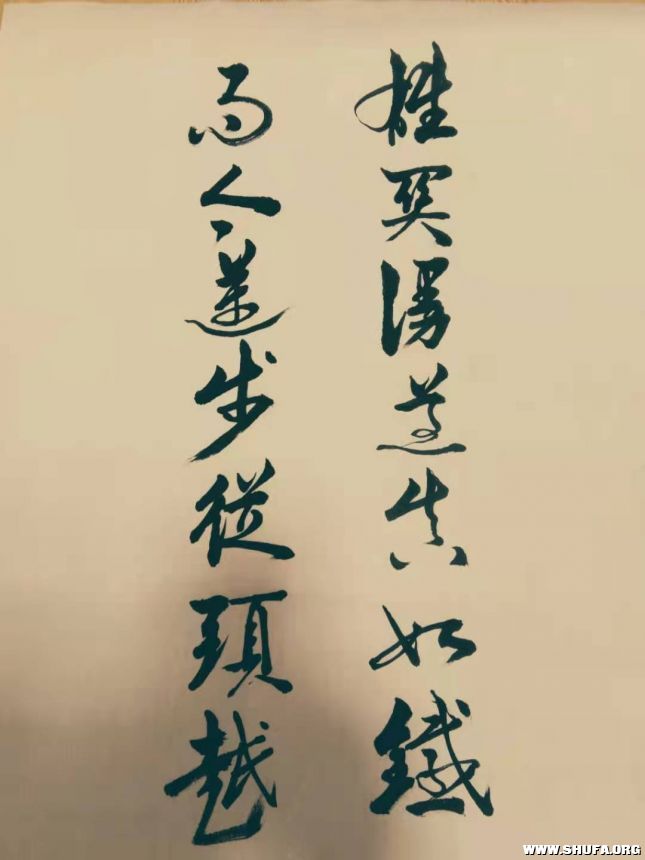 雄關漫道真如鐵
而今邁步從頭越
WWW.SHUFA.ORG